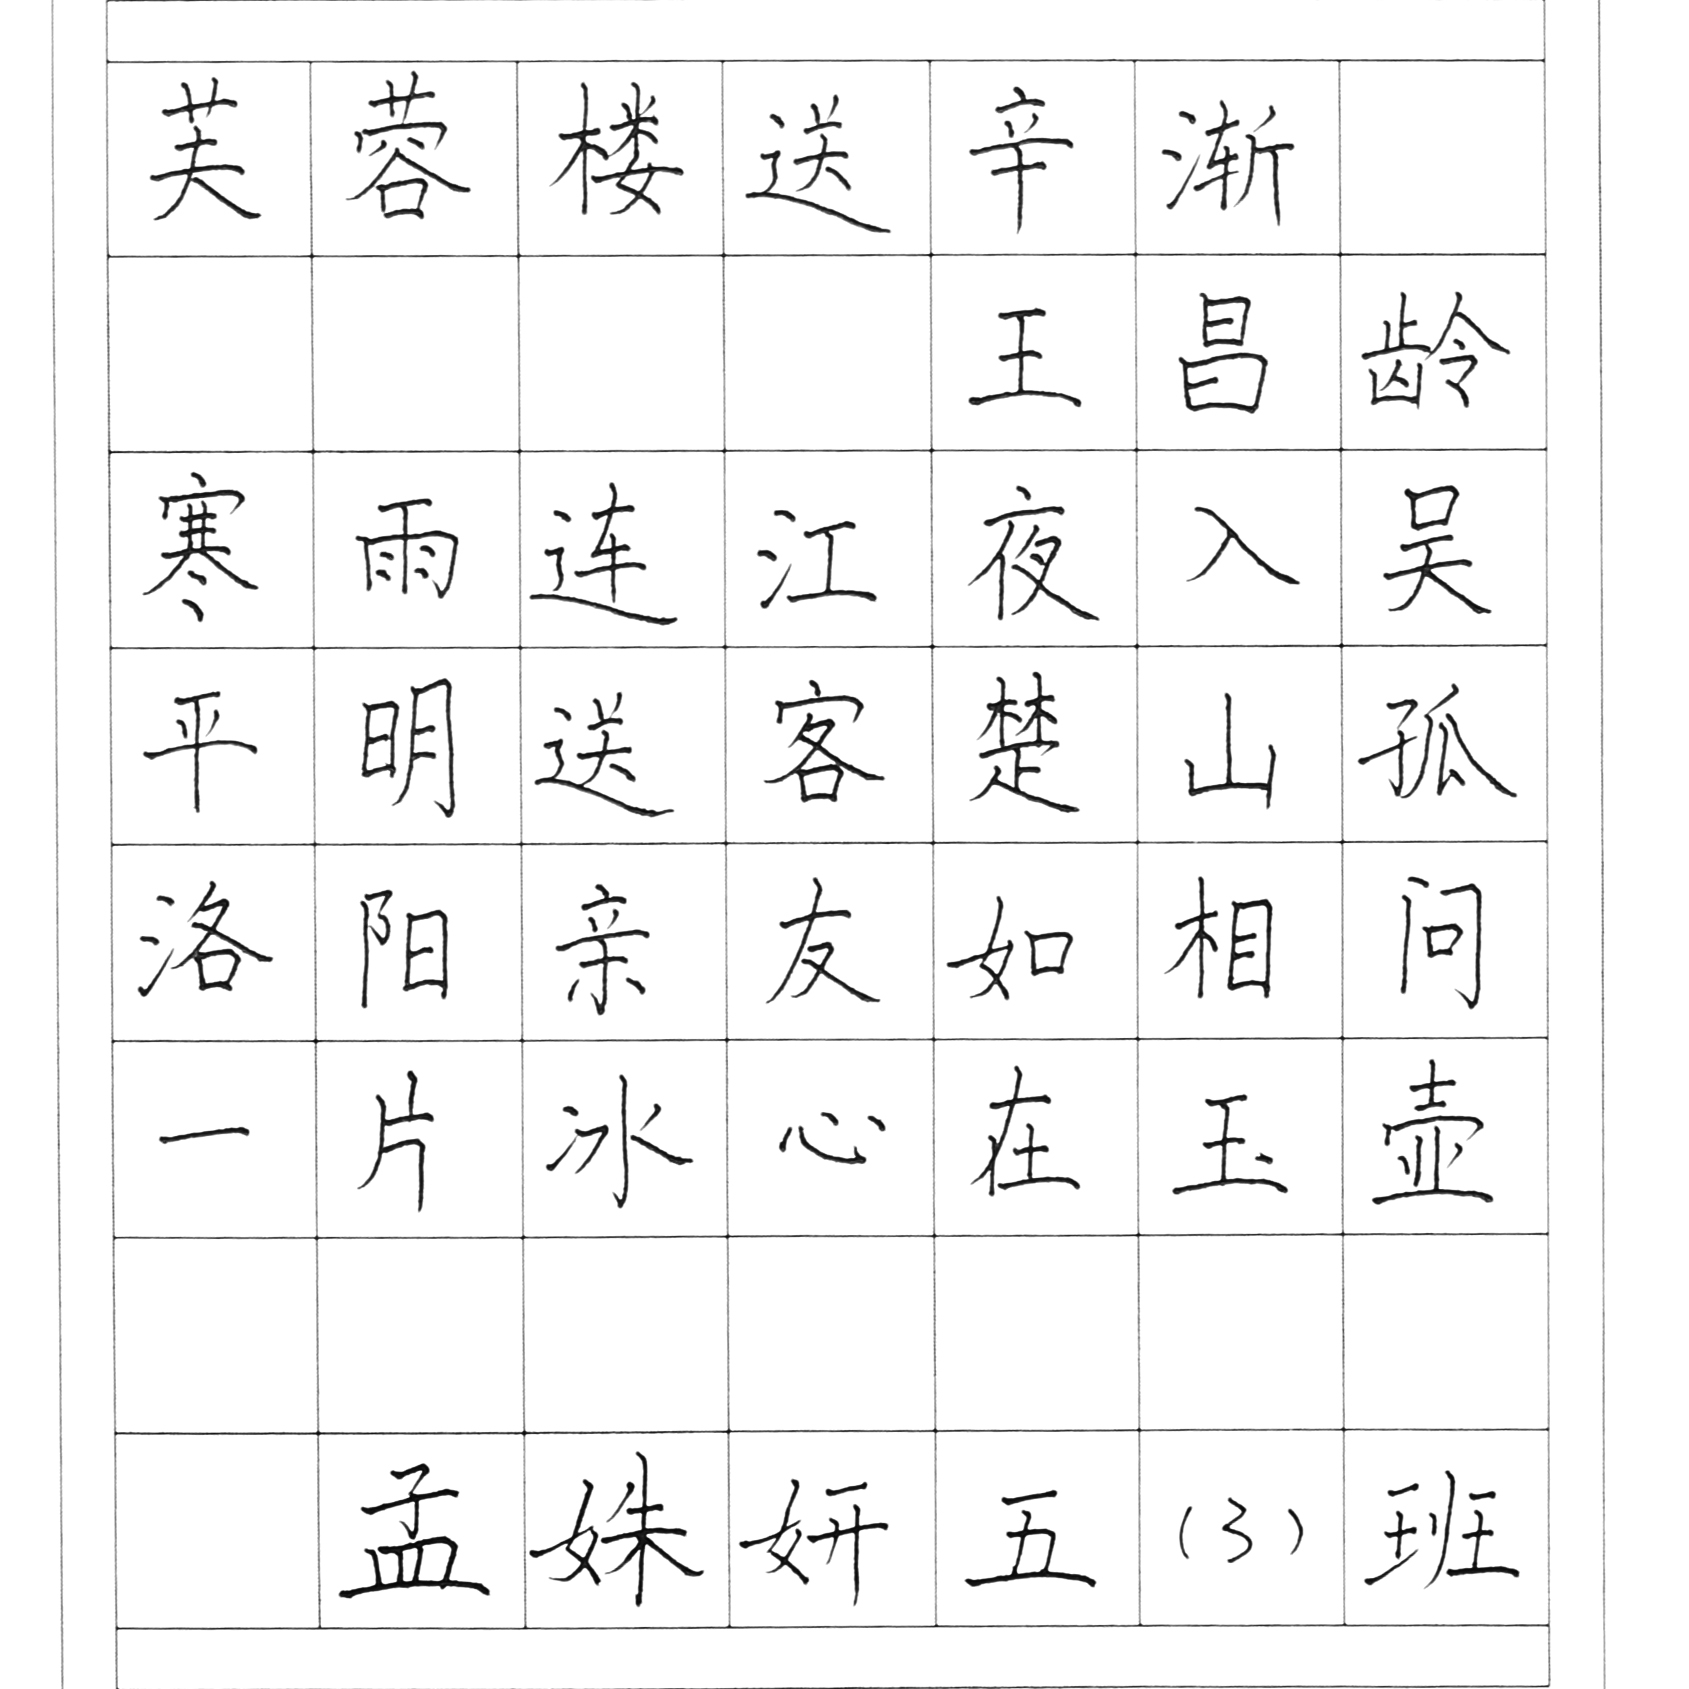 芙蓉楼送辛渐
王昌龄
寒雨连江夜入吴
平明送客楚山孤
洛阳亲友如相问
一片冰心在玉壶
孟姝妍五(3)班